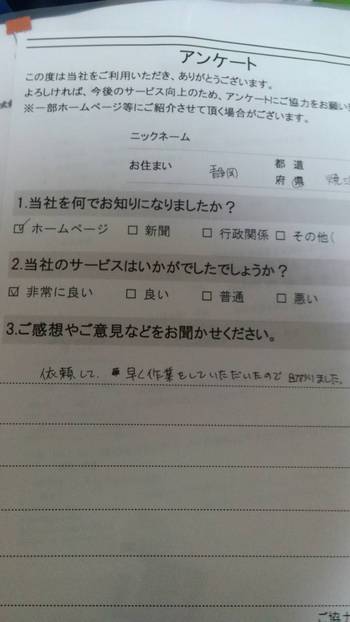 アンケート
この度は当社をご利用いただき、ありがとうございます。
よろしければ、今後のサービス向上のため、アンケートにご協力をお願い
※一部ホームページ等にご紹介させて頂く場合がございます。
ニックネーム
お住まい 静岡 都 道 府 県 焼
1.当社を何でお知りになりましたか？
☑ ホームページ □ 新聞 □ 行政関係 □ その他(
2.当社のサービスはいかがでしたでしょうか？
☑ 非常に良い □ 良い □ 普通 □ 悪い
3.ご感想やご意見などをお聞かせください。
依頼して、早く作業をしていただいたので助かりました。
ご協力